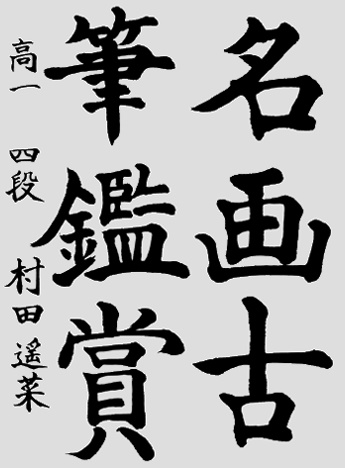 名画古
筆鑑賞
高一 四段 村田遥菜